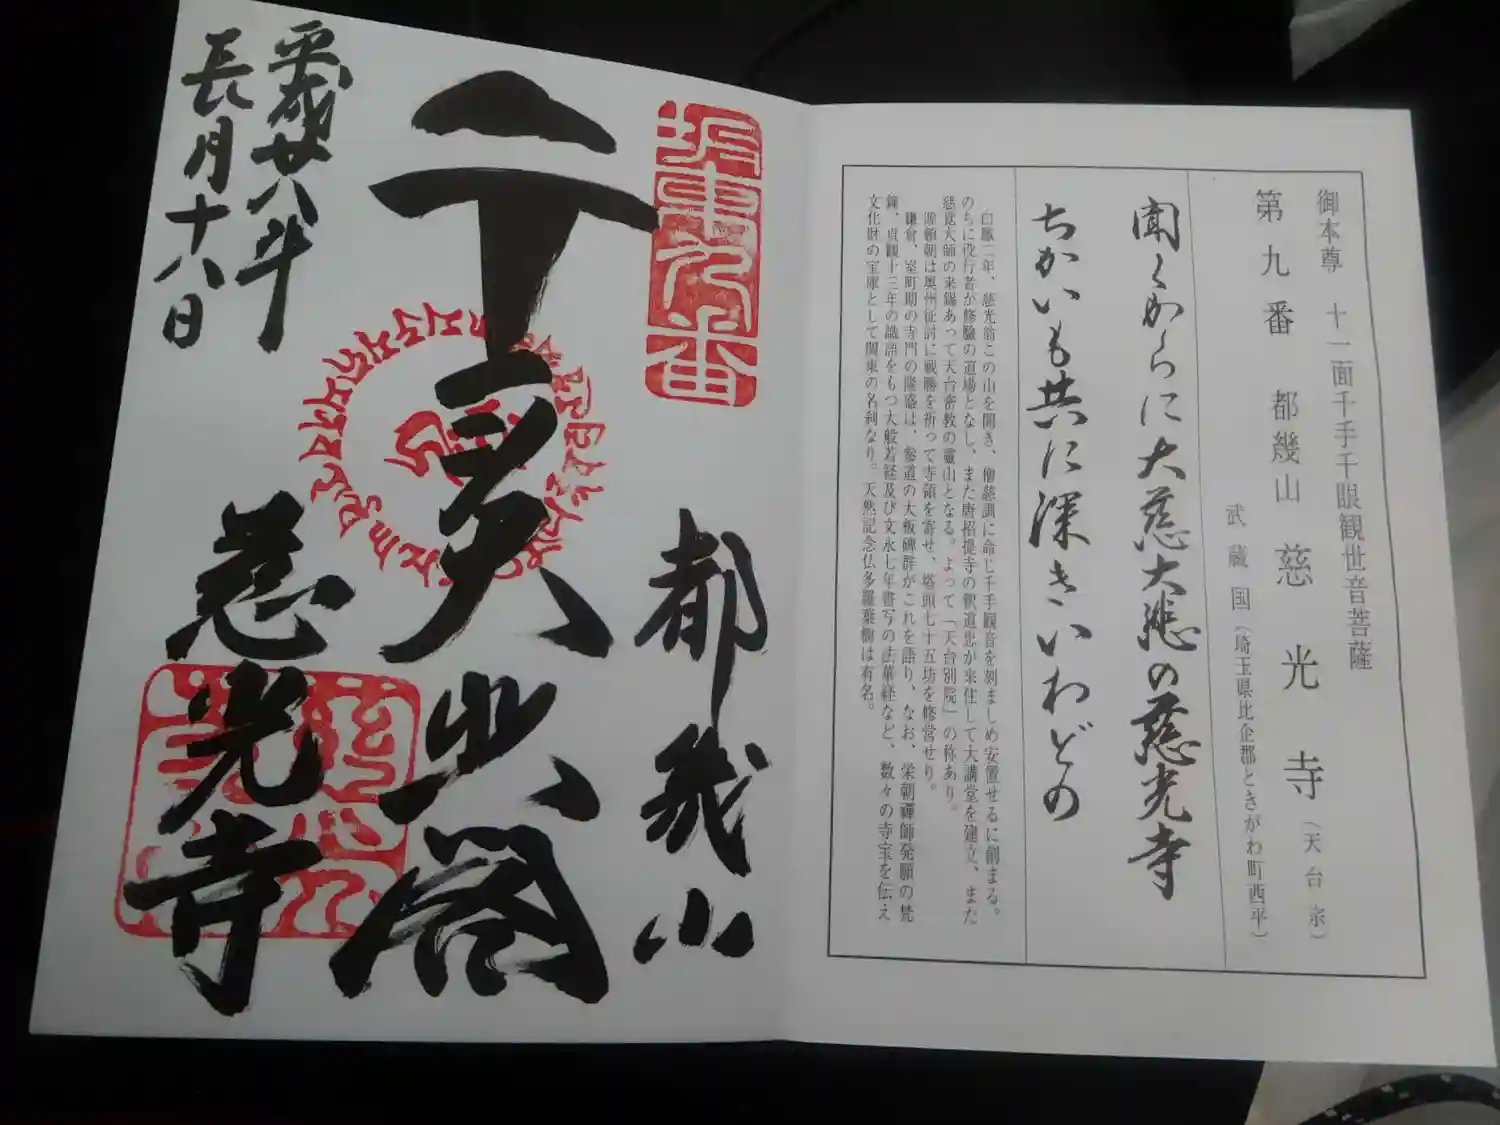 御本尊 十一面千手千眼観世音菩薩
第九番 都幾山 慈光寺（天台宗）
武蔵国（埼玉県比企郡ときがわ町西平）
聞くからに大慈大悲の慈光寺
ちかいも共に深きいわどの
白鳳二年、慈光翁この山を開き、僧慈訓に命じ千手観音を刻ましめ安置せるに創まる。
のちに役行者が修験の道場となし、また唐招提寺の釈道忠が来住して大講堂を建立、また
慈覚大師の来錫あって天台密教の霊山となる。よって「天台別院」の称あり。
源頼朝は奥州征討に戦勝を祈って寺領を寄せ、塔頭七十五坊を修営せり。
鎌倉、室町期の寺門の隆盛は、参道の大板碑群がこれを語り、なお、栄朝禅師発願の梵
鐘、貞観十三年の識語をもつ大般若経及び文永七年書写の法華経など、数々の寺宝を伝え
文化財の宝庫として関東の名刹なり。天然記念仏多羅葉樹は有名。
坂東九番
都幾山
慈光寺
平成廿八年
長月十八日